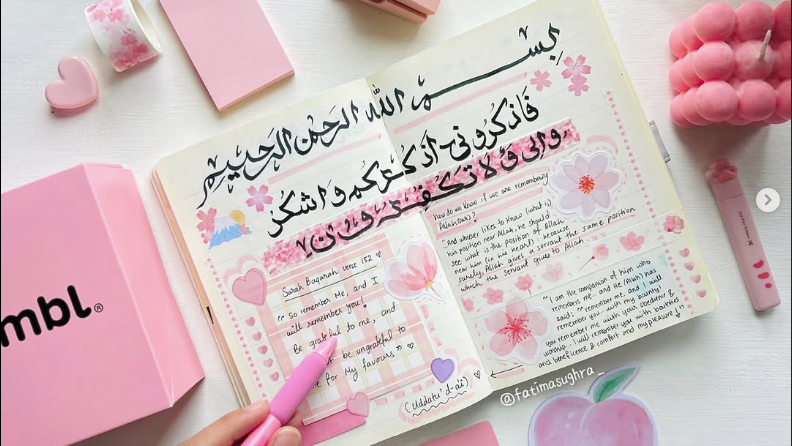 بِسْمِ اللهِ الرَّحْمٰنِ الرَّحِيْمِ
فَاذْكُرُوْنِيْٓ اَذْكُرْكُمْ وَاشْكُرُ
وْالِيْ وَلَا تَكْفُرُوْنِ
Surah Baqarah verse 152
"So remember Me, and I
will remember you!
Be grateful to me, and
be ungrateful to
for My favours"
How do we know if we are remembering
Allah (swt)?
"And whoever likes to know (what is)
his position near Allah, he should
see what is the position of Allah
near him (in his heart) because
surely, Allah gives a servant the same position
which the servant gives to Allah.
"I am the companion of him who
remembers me - and He (Allah) has
said: "remember me, and I will
remember you with my bounty!
you remember me with your obedience &
worship - I will remember you with bounties
and beneficence & comfort and my pleasure"
(Uddatu'd-ai)
mbl®
@fatimasughra_